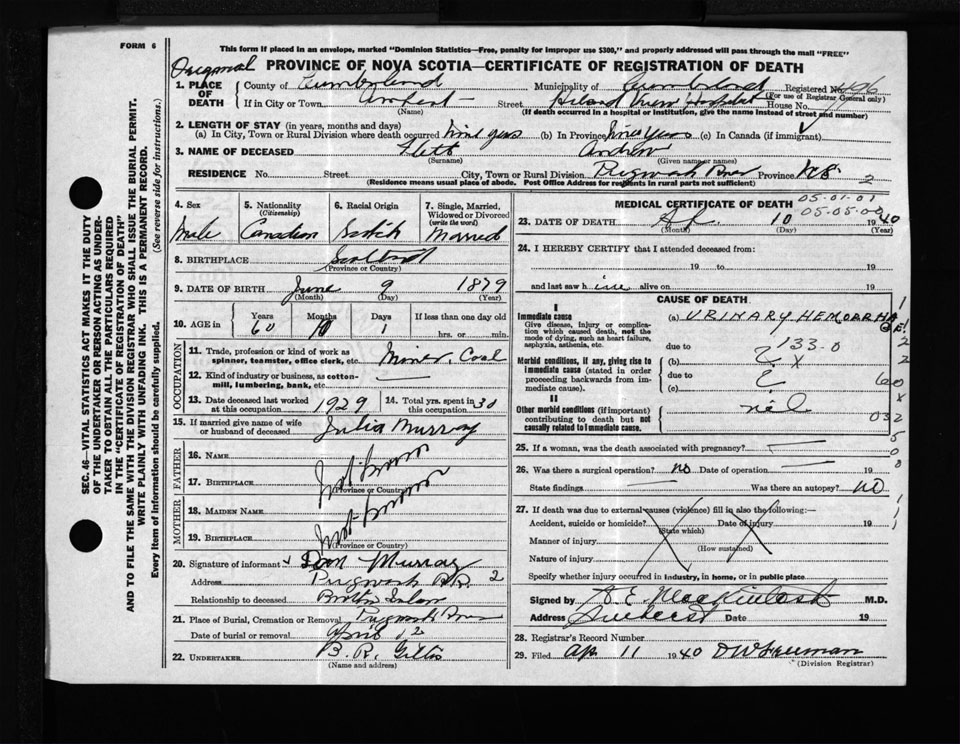 FORM 6
This form if placed in an envelope, marked "Dominion Statistics—Free, penalty for improper use $300," and properly addressed will pass through the mail "FREE"
Original PROVINCE OF NOVA SCOTIA—CERTIFICATE OF REGISTRATION OF DEATH
1. PLACE OF DEATH County of Cumberland Municipality of Cumberland Registered No.
(For use of Registrar General only)
If in City or Town Amherst Street Highland View Hospital House No.
(Name) (If death occurred in a hospital or institution, give the name instead of street and number)
2. LENGTH OF STAY (in years, months and days)
(a) In City, Town or Rural Division where death occurred (b) In Province (c) In Canada (if immigrant)
3. NAME OF DECEASED Flett Andrew
(Surname) (Given name or names)
RESIDENCE No. Street City, Town or Rural Division Pugwash River Province N.S. 2
(Residence means usual place of abode. Post Office Address for residents in rural parts not sufficient)
4. Sex 5. Nationality (Citizenship) 6. Racial Origin 7. Single, Married, Widowed or Divorced (write the word)
Male Canadian Scotch Married
8. BIRTHPLACE Scotland
(Province or Country)
9. DATE OF BIRTH June 9 1879
(Month) (Day) (Year)
10. AGE in Years Months Days If less than one day old
60 10 1 hrs. or min.
OCCUPATION
11. Trade, profession or kind of work as spinner, teamster, office clerk, etc. Miner, Coal
12. Kind of industry or business, as cotton-mill, lumbering, bank, etc.
13. Date deceased last worked at this occupation 1929 14. Total yrs. spent in this occupation 30
15. If married give name of wife or husband of deceased Julia Murray
FATHER
16. NAME
17. BIRTHPLACE Not known
(Province or Country)
MOTHER
18. MAIDEN NAME
19. BIRTHPLACE Not known
(Province or Country)
20. Signature of informant Don Murray
Address Pugwash R.R. 2
Relationship to deceased Brother in law
21. Place of Burial, Cremation or Removal Pugwash River
Date of burial or removal April 12
22. UNDERTAKER B. R.
(Name and address)
MEDICAL CERTIFICATE OF DEATH 05-01-01
05-05-00
23. DATE OF DEATH Ap. 10 1940
(Month) (Day) (Year)
24. I HEREBY CERTIFY that I attended deceased from:
19 to 19
and last saw h im alive on 19
CAUSE OF DEATH
I
Immediate cause
Give disease, injury or complication which caused death, not the mode of dying, such as heart failure, asphyxia, asthenia, etc.
(a) URINARY HEMORRHAGE
due to 133.0
Morbid conditions, if any, giving rise to immediate cause (stated in order proceeding backwards from immediate cause).
(b) ? x
due to ?
(c)
II
Other morbid conditions (if important) contributing to death but not causally related to immediate cause.
nil
25. If a woman, was the death associated with pregnancy?
26. Was there a surgical operation? no Date of operation 19
State findings Was there an autopsy? no
27. If death was due to external causes (violence) fill in also the following:—
Accident, suicide or homicide? Date of injury 19
(State which)
Manner of injury
(How sustained)
Nature of injury
Specify whether injury occurred in industry, in home, or in public place
Signed by A. E. MacKintosh M.D.
Address Amherst Date 19
28. Registrar's Record Number
29. Filed Ap 11 1940 D W Freeman
(Division Registrar)
SEC. 46—VITAL STATISTICS ACT MAKES IT THE DUTY OF THE UNDERTAKER OR PERSON ACTING AS UNDERTAKER TO OBTAIN ALL THE PARTICULARS REQUIRED IN THE "CERTIFICATE OF REGISTRATION OF DEATH" AND TO FILE THE SAME WITH THE DIVISION REGISTRAR WHO SHALL ISSUE THE BURIAL PERMIT.
WRITE PLAINLY WITH UNFADING INK. THIS IS A PERMANENT RECORD.
Every item of information should be carefully supplied. (See reverse side for instructions.)